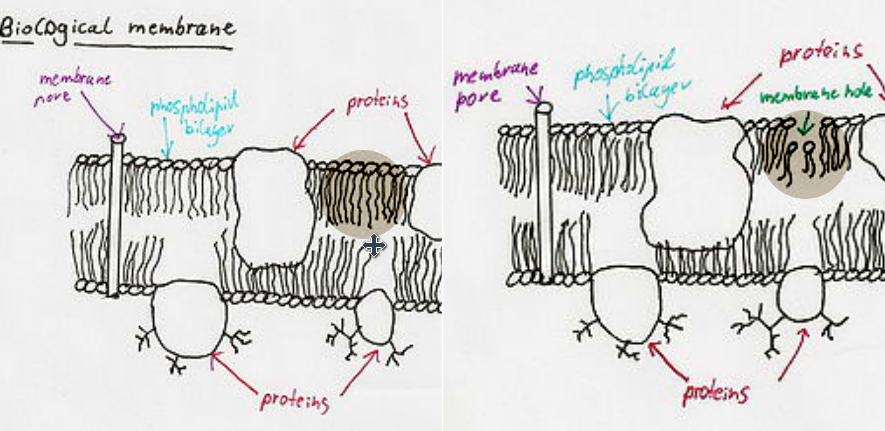 Biological membrane
membrane
pore
phospholipid
bilayer
proteins
proteins
membrane
pore
phospholipid
bilayer
proteins
membrane hole
proteins